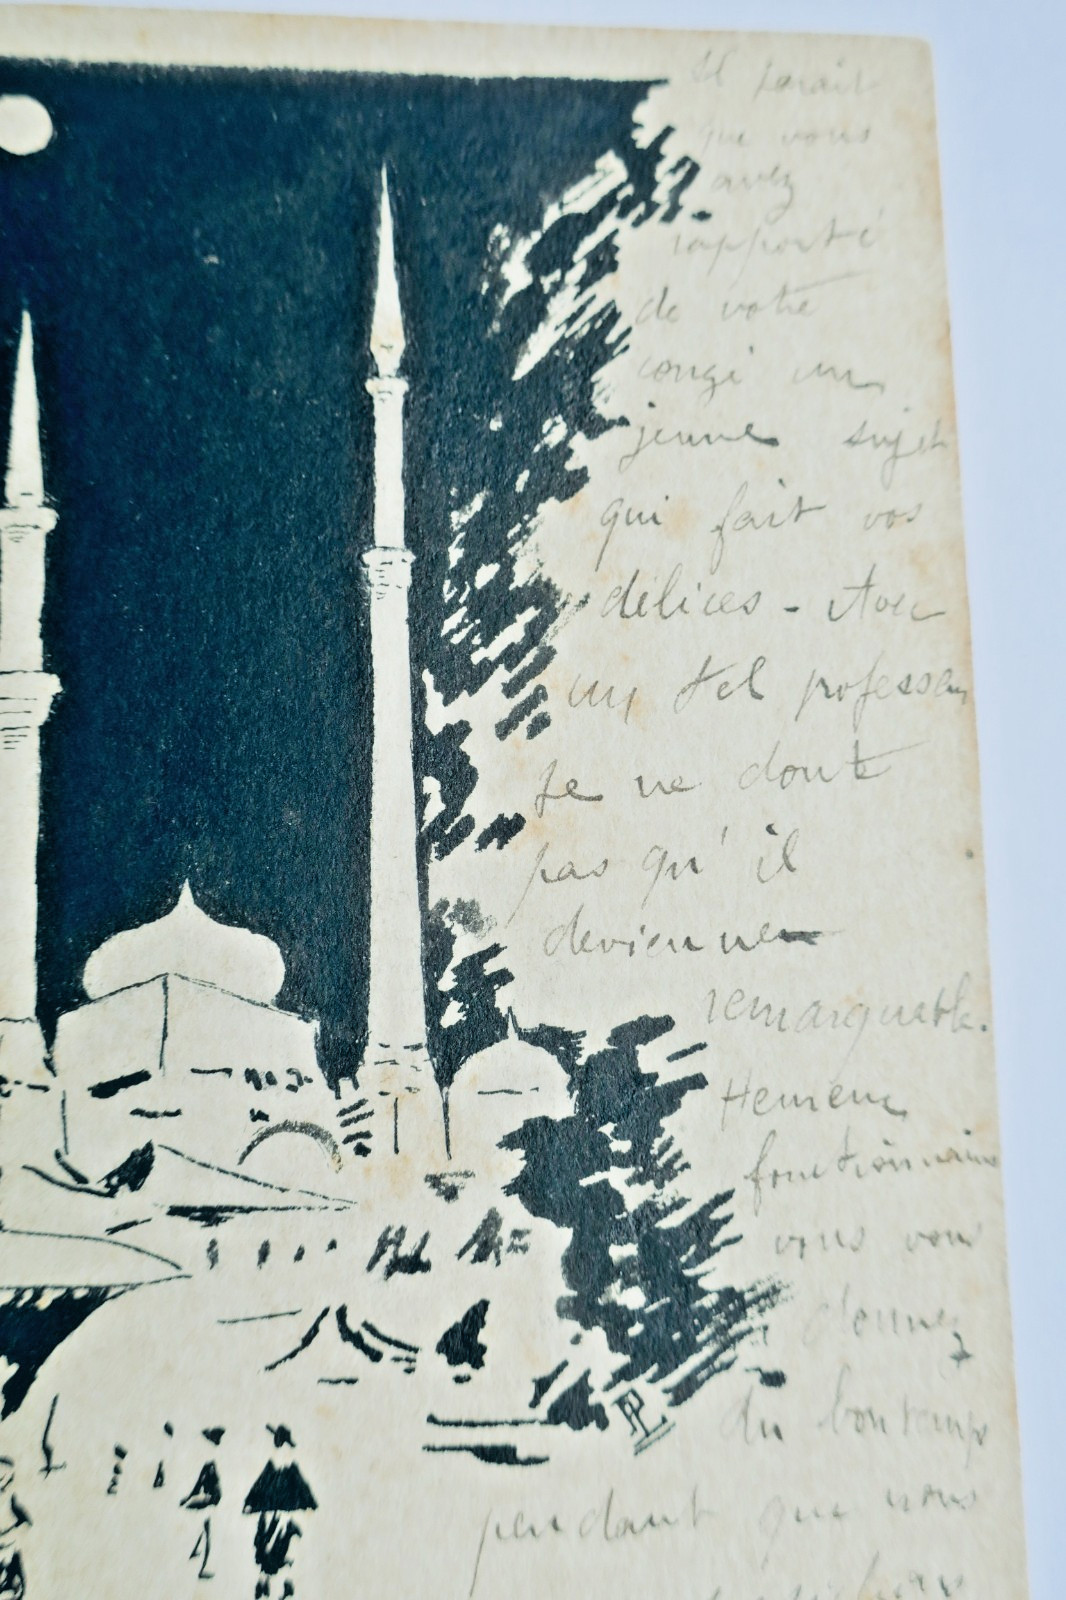 Il parait
que vous
avez
rapporté
de votre
congé un
jeune sujet
qui fait vos
délices - Avec
un tel professeur
je ne doute
pas qu'il
devienne
remarquable.
Heureux
fonctionnaire
vous vous
donnez
du bon temps
pendant que nous
PL